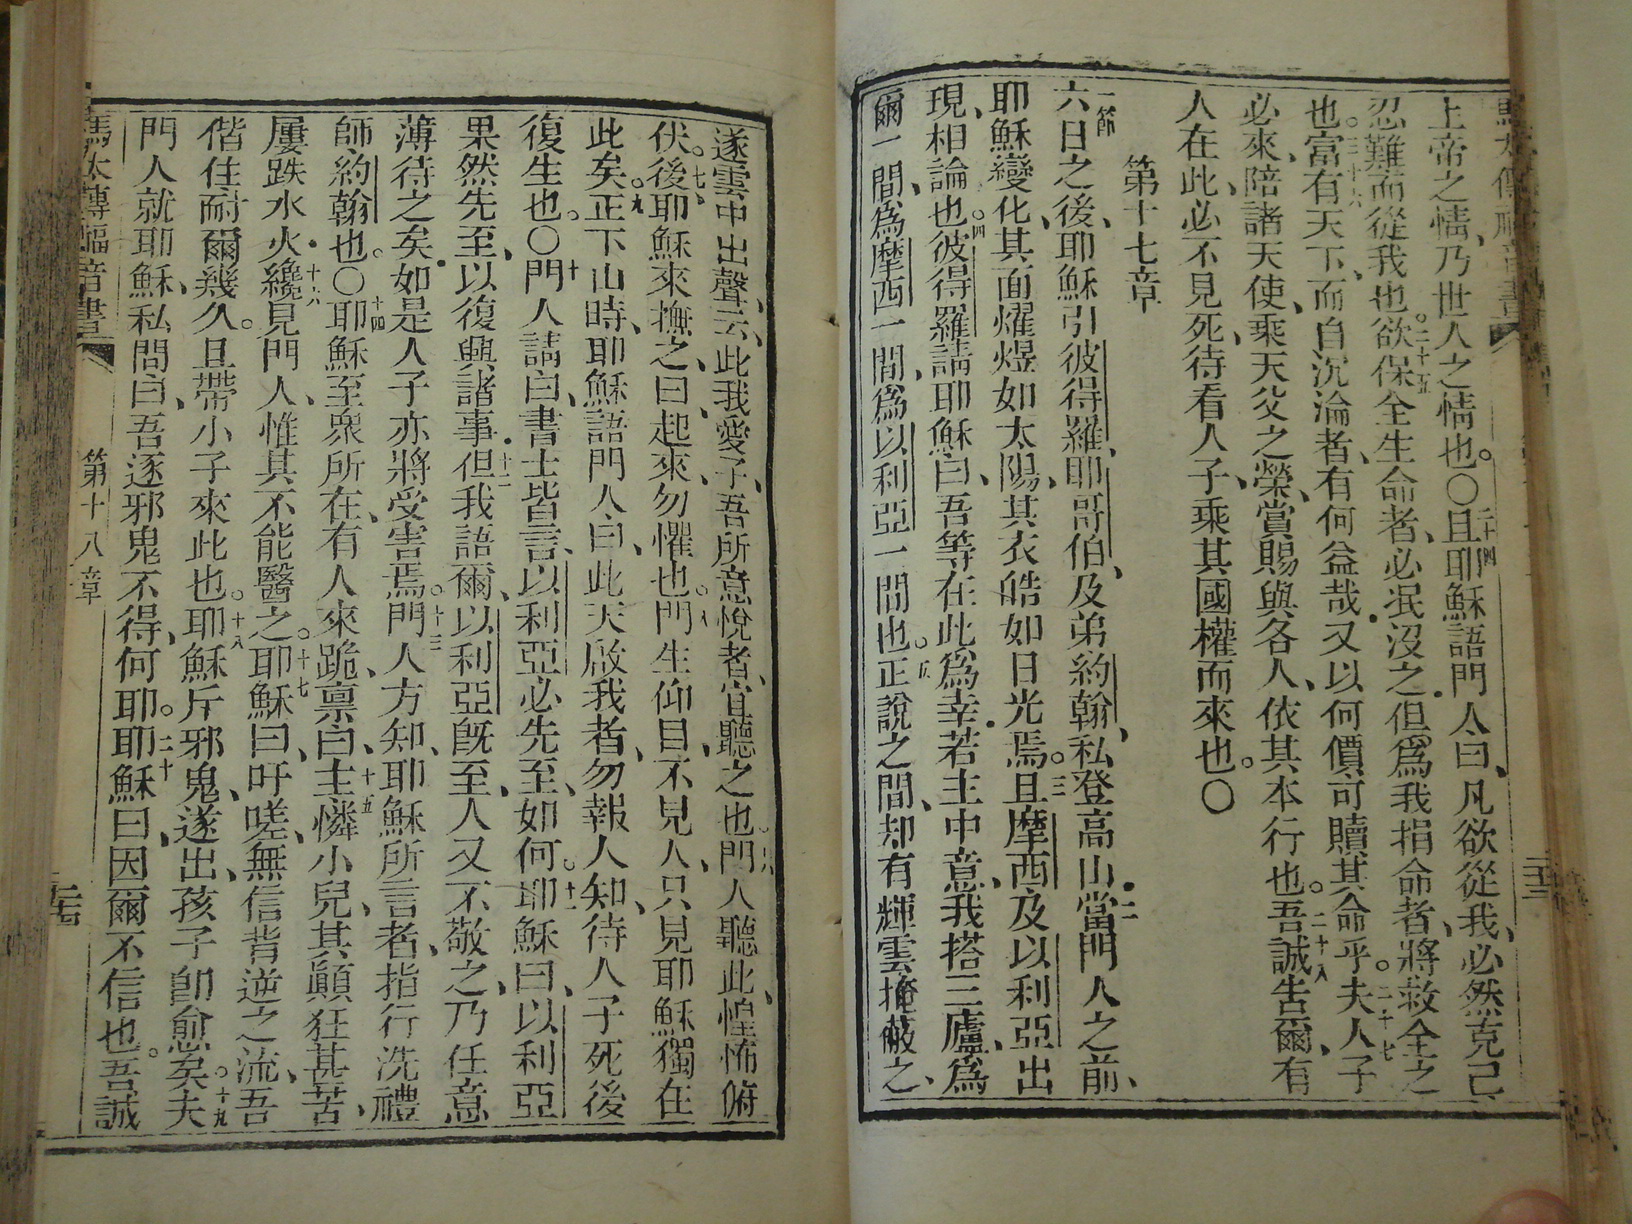 馬太傳福音書
上帝之情、乃世人之情也。〇二十四且耶穌語門人曰、凡欲從我、必然克己
忍難而從我也。二十五欲保全生命者、必泯沒之、但爲我捐命者、將救全之
也。二十六富有天下、而自沉淪者、有何益哉、又以何價可贖其命乎。二十七夫人子
必來、陪諸天使、乘天父之榮、賞賜與各人、依其本行也。二十八吾誠告爾、有
人在此、必不見死、待看人子、乘其國權而來也。〇
第十七章
一節六日之後、耶穌引彼得羅、耶哥伯、及弟約翰、私登高山、二當門人之前、
耶穌變化、其面燿煜如太陽、其衣皓如日光焉。三且摩西及以利亞出
現、相論也。四彼得羅請耶穌曰、吾等在此爲幸、若主中意、我搭三廬、爲
爾一間、爲摩西一間、爲以利亞一間也。五正說之間、却有輝雲掩蔽之、
遂雲中出聲、云、此我愛子、吾所意悅者、宜聽之也。六門人聽此、惶怖俯
伏。七後耶穌來撫之、曰、起來、勿懼也。八門生仰目、不見人、只見耶穌獨在
此矣。九正下山時、耶穌語門人、曰、此天啟我者、勿報人知、待人子死後
復生也。〇十門人請曰、書士皆言、以利亞必先至、如何。十一耶穌曰、以利亞
果然先至、以復興諸事、十二但我語爾、以利亞旣至、人又不敬之、乃任意
薄待之矣、如是人子亦將受害焉。十三門人方知、耶穌所言者、指行洗禮
師約翰也。〇十四耶穌至衆所在、有人來跪、禀曰、十五主憐小兒、其顚狂甚苦、
屢跌水火、十六纔見門人、惟其不能醫之。十七耶穌曰、吁嗟、無信背逆之流、吾
偕住耐爾幾久。且帶小子來此也。十八耶穌斥邪鬼、遂出、孩子卽愈矣。十九夫
門人就耶穌、私問曰、吾逐邪鬼不得、何耶。二十耶穌曰、因爾不信也。吾誠
馬太傳福音書
第十八章